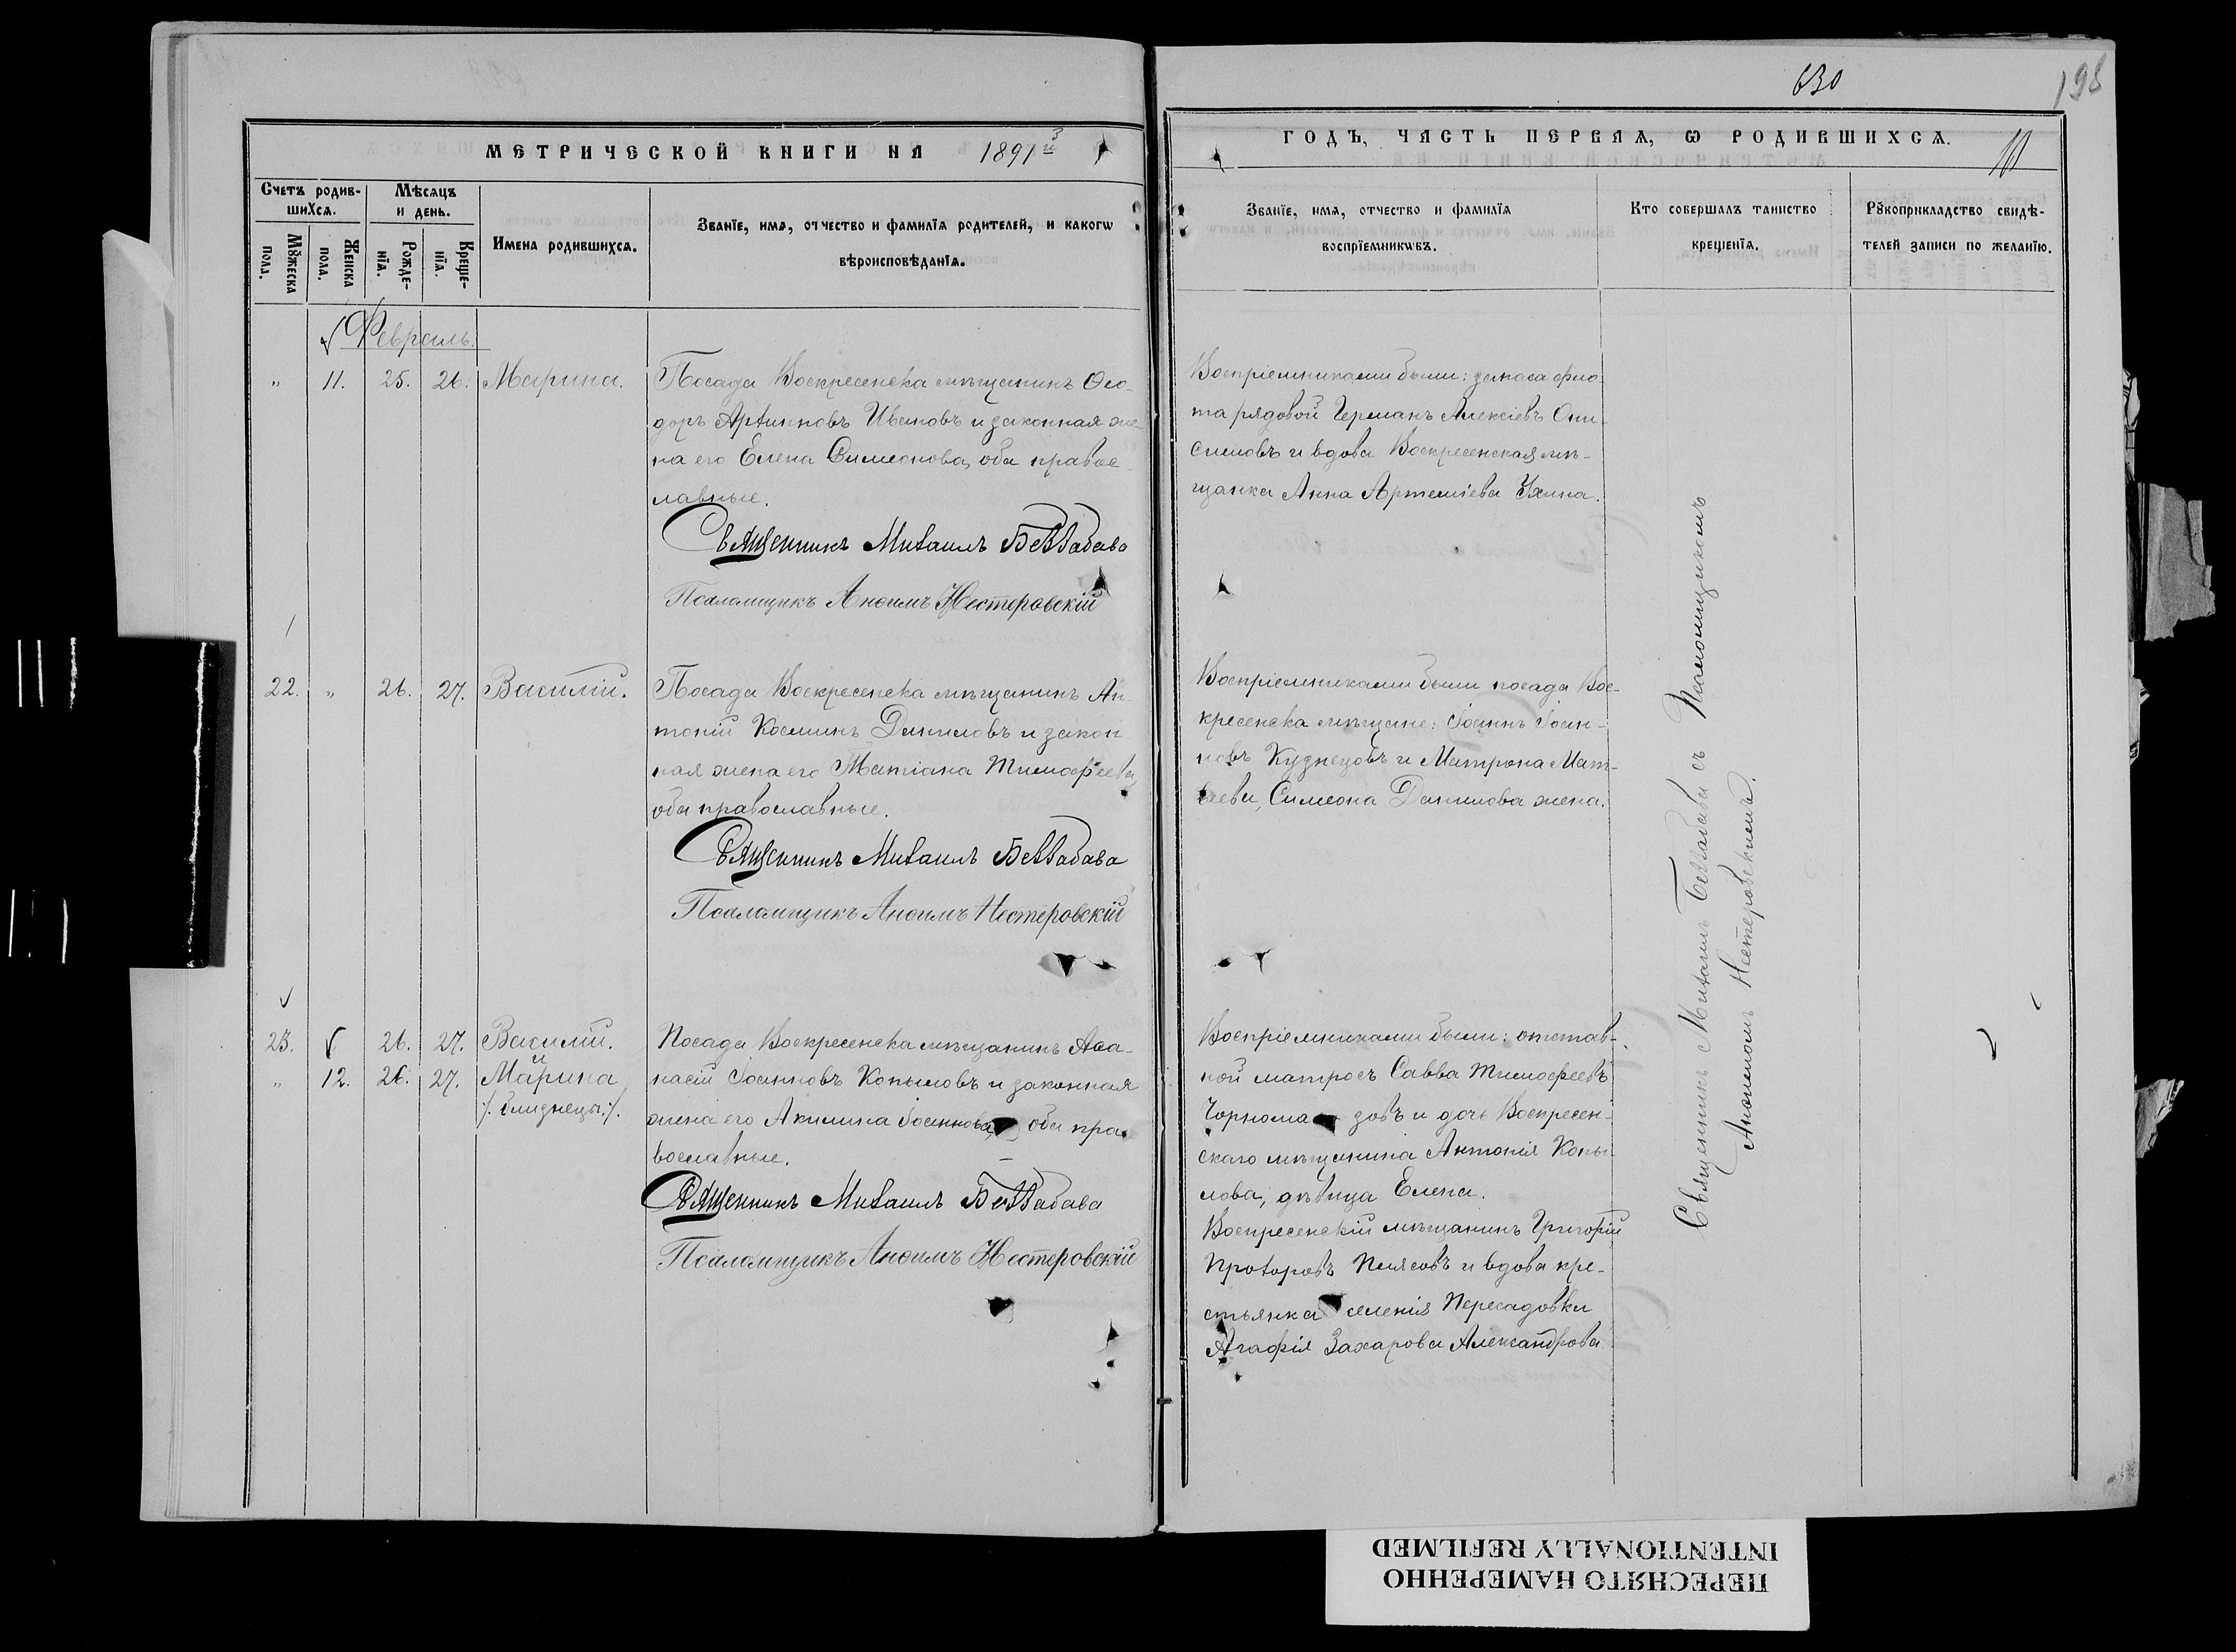 630
198
МЕТРИЧЕСКОЙ КНИГИ НА 1891й
ГОДЪ, ЧАСТЬ ПЕРВАЯ, Ѡ РОДИВШИХСЯ.
Счетъ родив-
шихся.
Мѣсяцъ
и день.
Мꙋжеска
пола.
Женска
пола.
Рожде-
нїя.
Креще-
нїя.
Имена родившихся.
Званїе, имя, отчество и фамилїя родителей, и какогѡ
вѣроисповѣданїя.
Званїе, имя, отчество и фамилїя
воспрїемникѡвъ.
Кто совершалъ таинство
крещенїя.
Рꙋкоприкладство свидѣ-
телей записи по желанїю.
Февраль.
" 11. 25. 26. Марина.
Посада Воскресенска мѣщанинъ Ѳео-
доръ Артиновъ Ивановъ и законная же-
на его Елена Симеонова, оба правос-
лавные.
Священникъ Михаилъ Беззабава
Псаломщикъ Анѳимъ Нестеровскій
Воспріемниками были: запаса фло-
та рядовой Германъ Алексіевъ Они-
симовъ и вдова Воскресенская мѣ-
щанка Анна Артеміева Ухина.
22. " 26. 27. Василій.
Посада Воскресенска мѣщанинъ Ан-
тоній Косминъ Даниловъ и закон
ная жена его Татіана Тимофеева,
оба православные.
Священникъ Михаилъ Беззабава
Псаломщикъ Анѳимъ Нестеровскій
Воспріемниками были посада Вос-
кресенска мѣщане: Іоаннъ Іоан-
новъ Кузнецовъ и Матрона Мат-
ѳеева, Симеона Данилова жена.
23. 26. 27. Василій.
и
" 12. 26. 27. Марина
/. близнецы ./.
Посада Воскресенска мѣщанинъ Аѳа-
насій Іоанновъ Копыловъ и законная
жена его Акилина Іоаннова, оба пра-
вославные.
Священникъ Михаилъ Беззабава
Псаломщикъ Анѳимъ Нестеровскій
Воспріемниками были: отстав-
ной матросъ Савва Тимофеевъ
Чорнома зовъ и дочь Воскресен-
скаго мѣщанина Антонія Копы-
лова, дѣвица Елена.
Воскресенскій мѣщанинъ Григорій
Прохоровъ Плясовъ и вдова кре-
стьянка селенія Пересадовки
Агафія Захарова Александрова
Священникъ Михаилъ Беззабава съ Псаломщикомъ
Анѳимомъ Нестеровскимъ.
ПЕРЕСНЯТО НАМЕРЕННО
INTENTIONALLY REFILMED